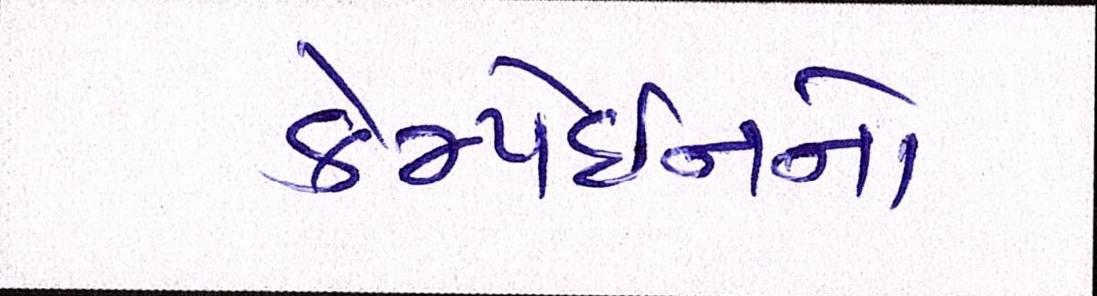 કેમ્પેઈનનો